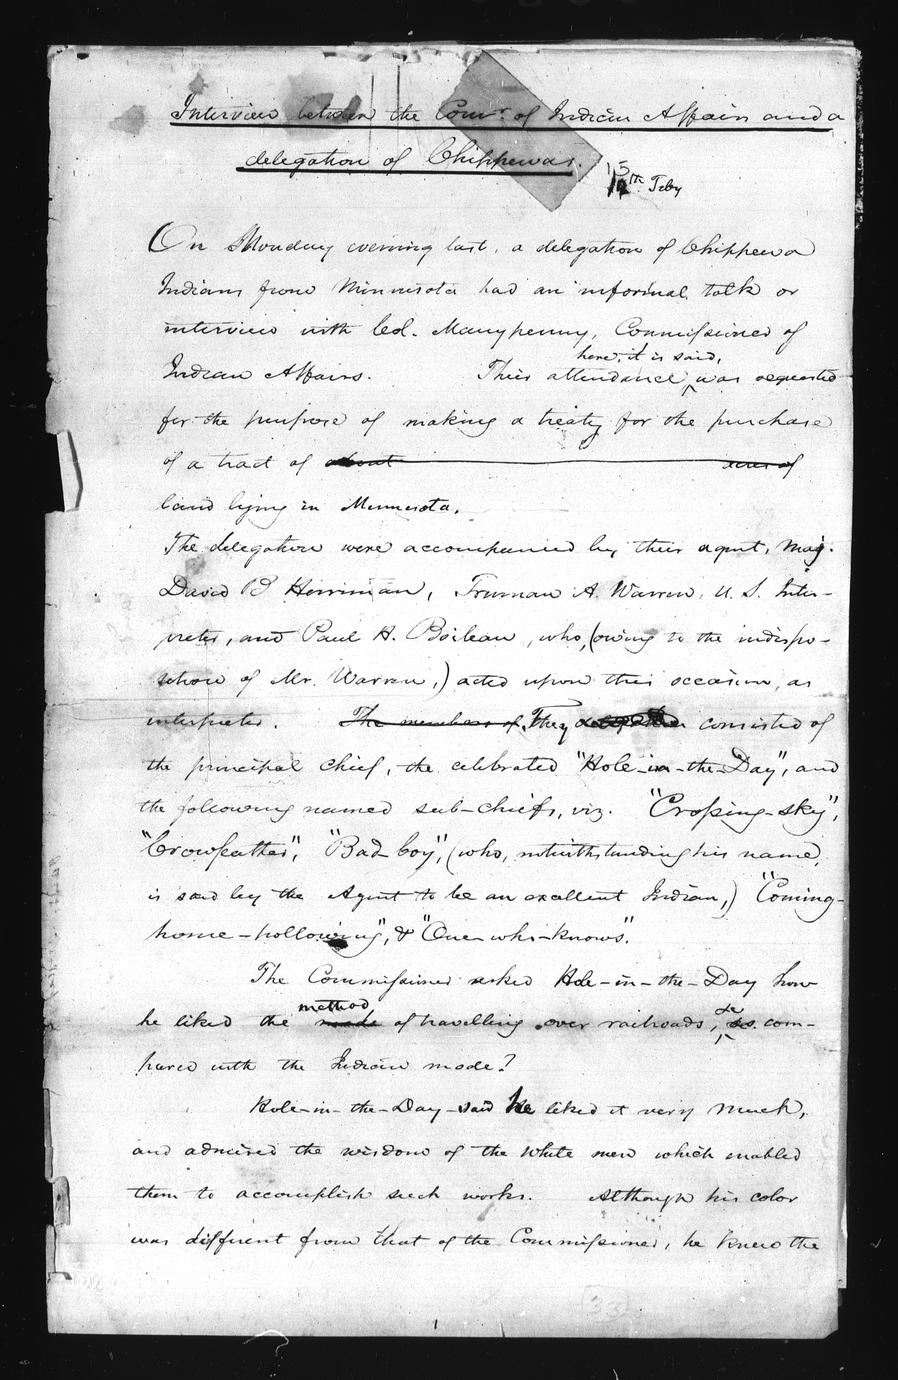 Interview between the Comr. of Indian Affairs and a
delegation of Chippewas.
15th Feby
On Monday evening last, a delegation of Chippewa
Indians from Minnesota had an informal talk or
interview with Col. Manypenny, Commissioner of
here, it is said,
Indian Affairs. Their attendance was requested
for the purpose of making a treaty for the purchase
of a tract of about acres of
land lying in Minnesota.
The delegation were accompanied by their agent, Maj.
David B Herriman, Truman A. Warren, U. S. Inter-
preter, and Paul H. Boileau, who, (owing to the indispo-
sition of Mr. Warren,) acted upon this occasion, as
interpreter. The members of They delegation consisted of
the principal chief, the celebrated "Hole-in-the-Day", and
the following named sub-chiefs, viz. "Crossing-sky",
"Crowfeather", "Bad-boy", (who, notwithstanding his name,
is said by the Agent to be an excellent Indian,) "Coming-
home-hollowing", & "One-who-knows".
The Commissioner asked Hole-in-the-Day how
method
he liked the mode of travelling over railroads, as com-
pared with the Indian mode?
Hole-in-the-Day said he liked it very much,
and admired the wisdom of the white men which enabled
them to accomplish such works. Although his color
was different from that of the Commissioner, he knew the
33
1